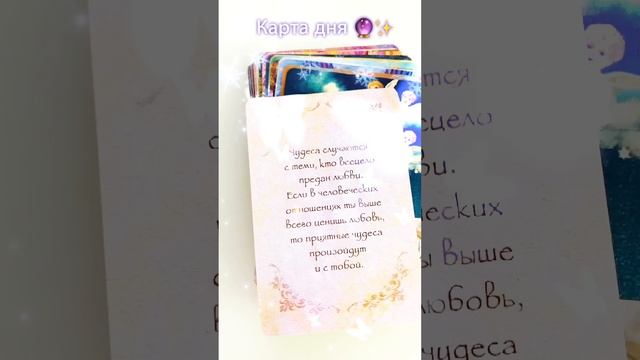 Карта дня 🔮✨
Чудеса случаются
с теми, кто всецело
предан любви.
Если в человеческих
отношениях ты выше
всего ценишь любовь,
то приятные чудеса
произойдут
и с тобой.